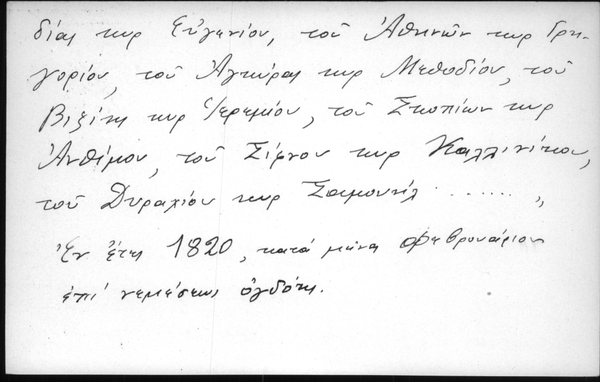 δίας κυρ Εὐγενίου, τοῦ Ἀθηνῶν κυρ Γρη-
γορίου, τοῦ Ἀγκύρας κυρ Μεθοδίου, τοῦ
Βιζύης κυρ Ἱερεμίου, τοῦ Σκοπίων κυρ
Ἀνθίμου, τοῦ Σίφνου κυρ Καλλινίκου,
τοῦ Δυραχίου κυρ Σαμουήλ ........ „
Ἐν ἔτει 1820, κατά μῆνα Φεβρουάριον
ἐπί νεμέσεως ὀγδόης.